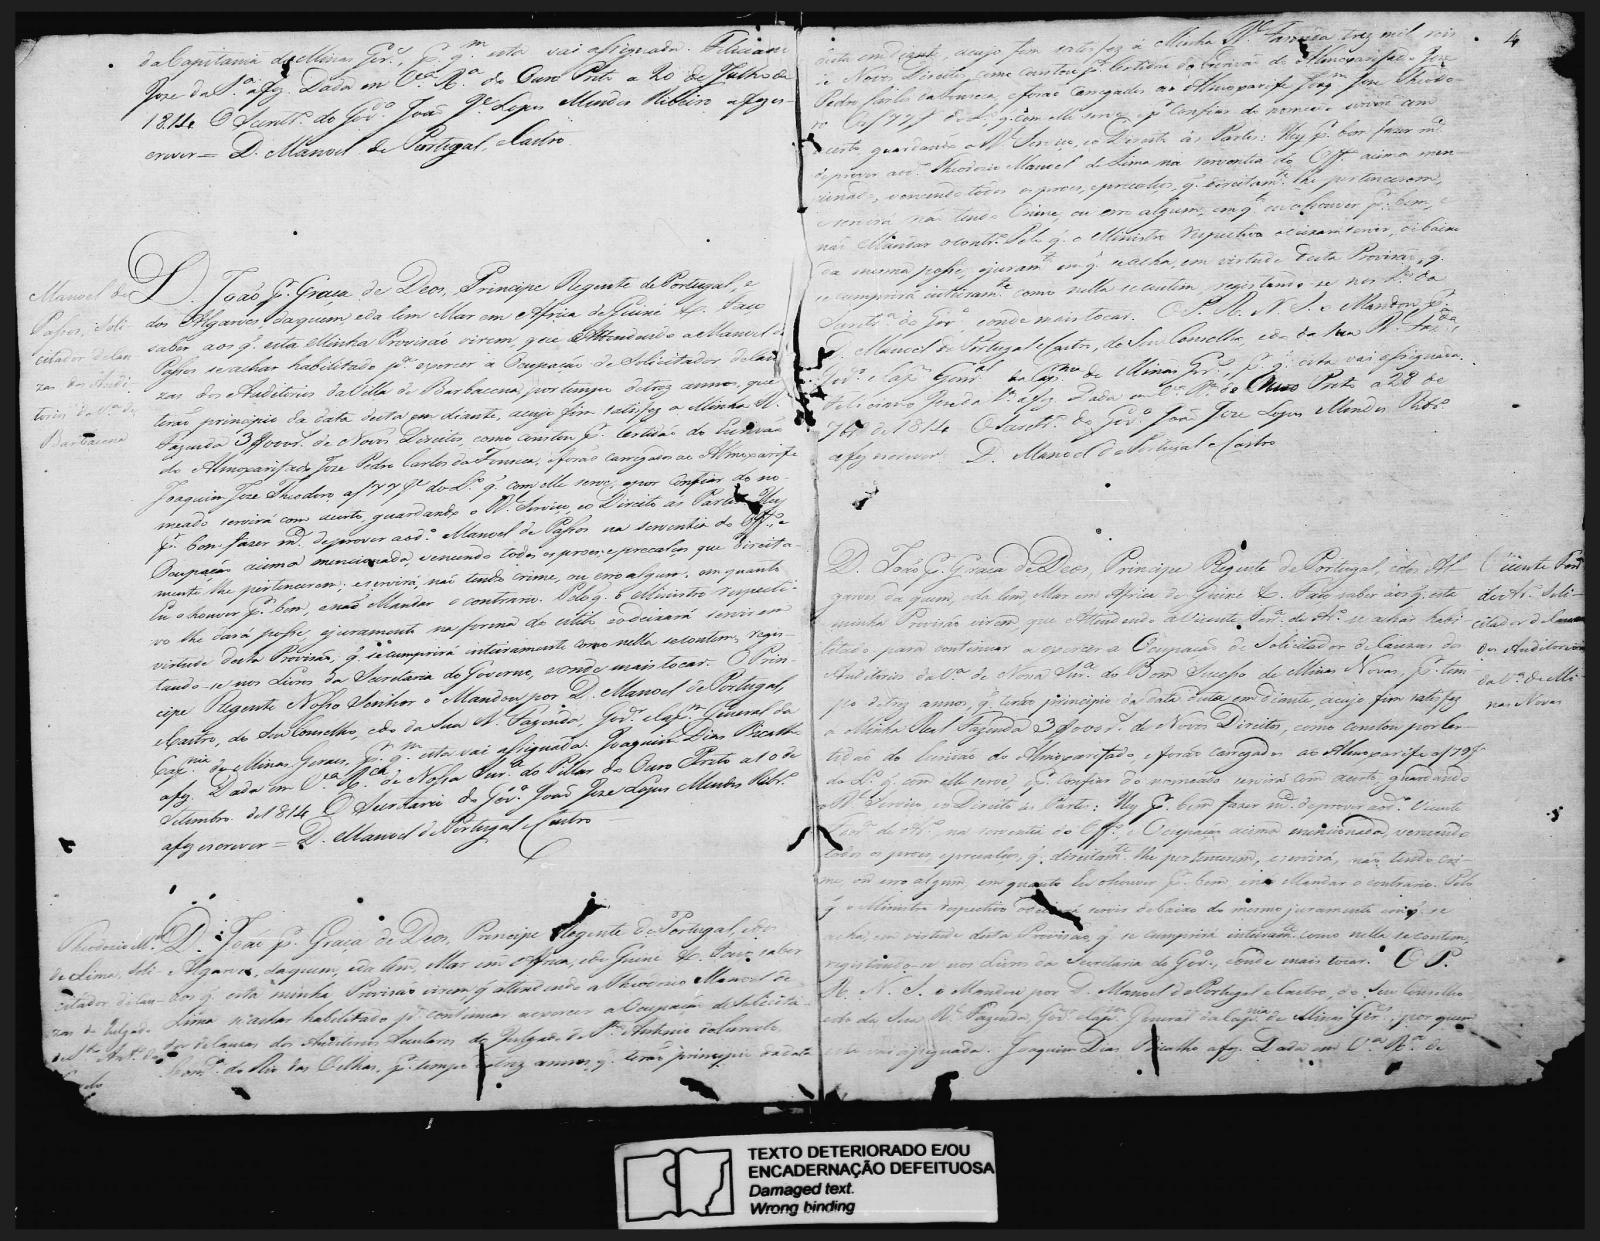 da Capitania de Minas Ger.s, p. q.m esta vai assignada. Feliciano
Joze da S.a a fez. Dada em V.a R.a do Ouro Preto a 20 de Julho de
1814. O Secret.o do Gov.o João J.e Lopes Mendes Ribeiro a fez es-
crever = D. Manoel de Portugal, e Castro
Manoel de
Passos, Soli-
citador de Cau-
zas dos Audi-
torios da V.a de
Barbacena
D. João p. Graça de Deos, Principe Regente de Portugal, e
dos Algarves, daquem, e da lem Mar em Africa de Guiné &. Faço
saber aos q. esta Minha Provisão virem, que Attendendo a Manoel de
Passos se achar habilitado p.a exercer a Ocupação de Solicitador de Cau-
zas dos Auditorios da Villa de Barbacena, por tempo de trez annos, que
terão principio da data desta em diante, a cujo fim satisfez a Minha R.
Fazenda 3$000 r. de Novos Direitos, como constou p. Certidão do Escrivão
do Almoxarifado Joze Pedro Carlos da Fonseca, e forão carregados ao Almoxarife
Joaquim Joze Theodoro a f 77 do L.o q. com elle serve, e por confiar do no-
meado servirá com acerto, guardando o R. Serviço, e o Direito as Partes: Hey
p. bem fazer m.ce de prover ao d.o Manoel de Passos na serventia do Off.o, e
Ocupação acima mencionada, vencendo todos os proes, e precalços que direita-
mente lhe pertencerem; e servirá não tendo crime, ou erro algum, em quanto
Eu o houver p. bem, e não Mandar o contrario. Pelo q. o Ministro respecti-
vo lhe dará posse, e juramento na forma do estilo, e o deixará servir em
virtude desta Provisão, q. se cumprirá inteiramente como nella se contem, regis-
tando-se nos Livros da Secretaria do Governo, e onde mais tocar. O Prin-
cipe Regente Nosso Senhor o Mandou por D. Manoel de Portugal,
e Castro, do Seu Conselho, e do da Sua R. Fazenda, Gov.or e Cap.m General da
Cap.nia de Minas Geraes, p. q.m esta vai assignada. Joaquim Dias Bicalho
a fez. Dada em V.a R.ca de Nossa Snr.a do Pillar do Ouro Preto a 10 de
Setembro de 1814. O Secretario do Gov.o João Joze Lopes Mendes Rib.o
a fez escrever = D. Manoel de Portugal e Castro
Theodozio M.el
de Lima, Soli-
citador de Cau-
zas do Julgado
de S.to Ant.o do
D. João p. Graça de Deos, Principe Regente de Portugal, e dos
Algarves, daquem, e da lem, Mar em Africa, e de Guiné &. Faço saber
aos q. esta minha Provisão virem q attendendo a Theodozio Manoel de
Lima se achar habilitado p.a continuar a exercer a Ocupação de Solicita-
dor de Cauzas dos Auditorios Seculares do Julgado de S.to Antonio do Curvelo,
Com.ca do Rio das Velhas, p. tempo de trez annos, q. terão principio da data
4
desta em diante, a cujo fim satisfez á Minha R.l Fazenda trez mil reis
de Novos Direitos, como constou p. Certidão do Escrivão do Almoxarifado Joze
Pedro Carlos da Fonseca, e forão carregados ao Almoxarife Joaq.m Joze Theodo-
ro a f 77 do L.o q. com elle serve, e p. confiar do nomeado servirá com
acerto, guardando o R.l Serviço, e o Direito ás Partes: Hey p. bem fazer m.ce
de prover ao d.o Theodozio Manoel de Lima na serventia do Off.o acima men-
cionado, vencendo todos os proes, e precalços, q. direitam.te lhe pertencerem,
e servirá não tendo Crime, ou erro algum, em q.to eu o houver p. bem, e
não Mandar o contr.o Pelo q. o Ministro respectivo o deixará servir, debaixo
da mesma posse, e juram.to em q. se acha, em virtude desta Provizão, q.
se cumprirá inteiram.te como nella se contem, registando-se nos L.os da
Secret.a do Gov.o, e onde mais tocar. O P. R. N. S. o Mandou p.
D. Manoel de Portugal e Castro, do Seu Conselho, e do da Sua R. Faz.da,
Gov.or e Cap.m Gen.al da Cap.nia de Minas Ger.s, p. q. esta vai assignada.
Feliciano Joze da S.a a fez. Dada em V.a R.a do Ouro Preto a 28 de
7br.o de 1814. O Secret.o do Gov.o João Joze Lopes Mendes Rib.o
a fez escrever. D. Manoel de Portugal e Castro
D. João p. Graça de Deos, Principe Regente de Portugal, e dos Al-
garves, da quem, e da lem Mar em Africa de Guiné &. Faço saber aos q. esta
minha Provisão virem, que Attendendo a Vicente Ferr.a de Ar.o se achar habi-
litado para continuar a exercer a Ocupação de Solicitador de Cauzas dos
Auditorios da V.a de Nossa Snr.a do Bom Sucesso de Minas Novas, p. tem-
po de trez annos, q. terão principio da data desta em diante, a cujo fim satisfez
a Minha Real Fazenda 3$000 r. de Novos Direitos, como constou por Cer-
tidão do Escrivão do Almoxarifado, e forão carregados ao Almoxarife a f 79
do L.o q. com elle serve, e p. confiar do nomeado servirá com acerto, guardando
o R.l Serviço, e o Direito as Partes: Hey p. bem fazer m.ce de prover ao d.o Vicente
Ferr.a de Ar.o na serventia do Off.o, e Ocupação acima mencionada, vencendo
todos os proes, e precalços, q. direitam.te lhe pertencerem, e servirá, não tendo cri-
me, ou erro algum, em quanto Eu o houver p. bem e não Mandar o contrario. Pelo
q. o Ministro respectivo o deixará servir debaixo do mesmo juramento em q. se
acha, em virtude desta Provisão, q. se cumprirá inteiram.te como nella se contem,
registando-se nos Livros da Secretaria do Gov.o, e onde mais tocar. O P.
R. N. S. o Mandou por D. Manoel de Portugal e Castro, do Seu Conselho
e do da Sua R.l Fazenda, Gov.or e Cap.m General da Cap.nia de Minas Ger.s, por quem
esta vai assignada. Joaquim Dias Bicalho a fez. Dada em V.a R.a de
Vicente Ferr.a
de Ar.o Soli-
citador de Cauzas
dos Auditorios
da V.a de Mi-
nas Novas
TEXTO DETERIORADO E/OU
ENCADERNAÇÃO DEFEITUOSA
Damaged text.
Wrong binding